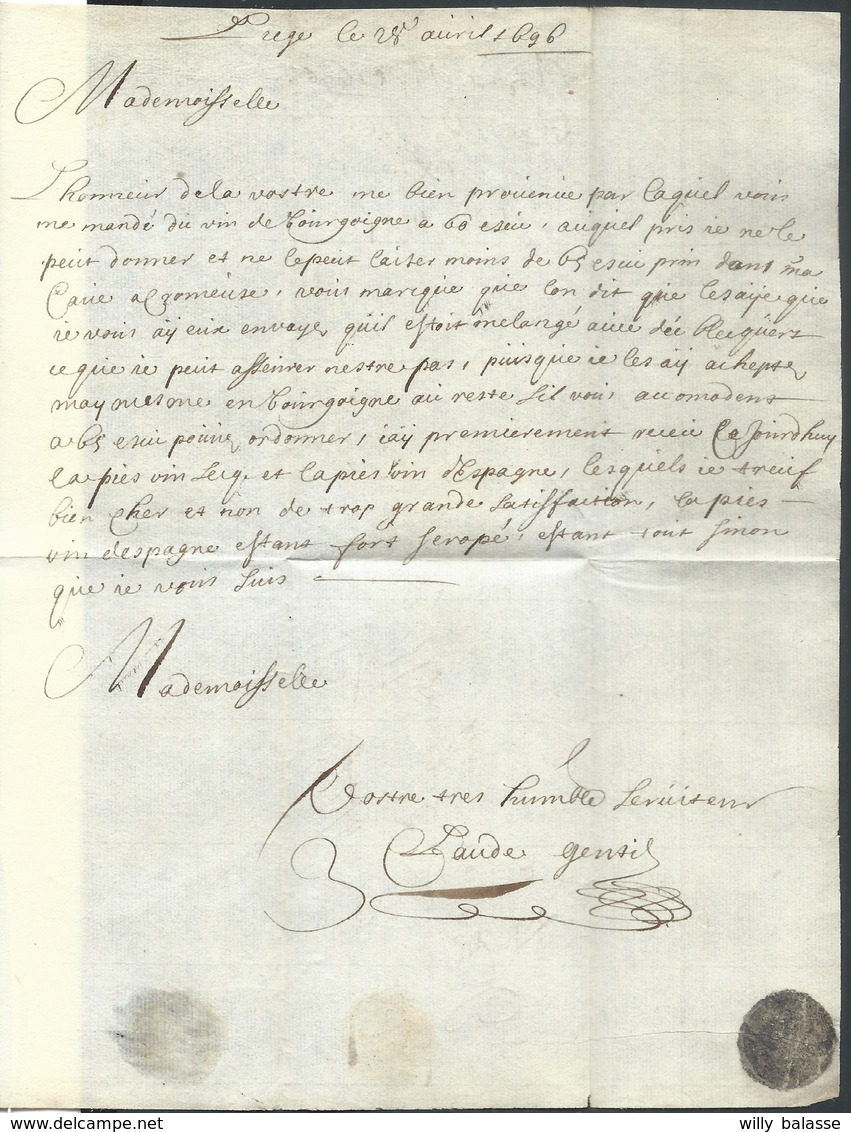 Liege le 28 auvril 1696
Mademoisselle
L'honneur de la vostre me bien prouenüe par laquel vous
me mandé du vin de bourgoigne a 60 escu, auquel pris ie ne le
peut donner et ne le peut laiser moins de 65 escu prin dans ma
Caue a Cromeuse, vous marque que lon dit que les aye que
ie vous aÿ eux envayé quil estoit melangé auec dec
ce que ie peut asseurer nestre pas, puisque ie les aÿ achepté
may mesme en bourgoigne au reste sil vous acomodent
a 65 escu pouué ordonner, iaÿ premierement receu Ce Jourdhuy
la pies vin et la pies vin d'Espagne, lesquels ie treuf
bien Cher et non de trop grande satisffaction, la pies
vin despagne estant fort seropé, estant tout sinon
que ie vous suis
Mademoisselle
Vostre tres humble seruiteur
Claude gentil
willy balasse